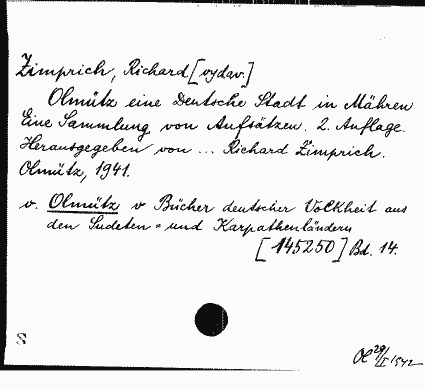 Zimprich, Richard [vydav.]
Olmütz eine Deutsche Stadt in Mähren
Eine Sammlung von Aufsätzen. 2. Auflage.
Herausgegeben von ... Richard Zimprich.
Olmütz, 1941.
v. Olmütz v Bücher deutscher Volkheit aus
den Sudeten = und Karpathenländern
[145250] Bd. 14.
S
Ol 29/I 1942